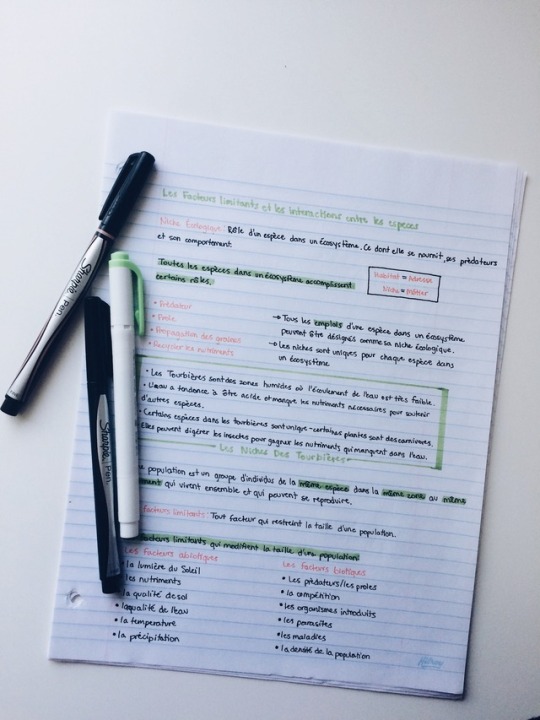 Les Facteurs limitants et les interactions entre les espèces
Niche Écologique: Rôle d'un espèce dans un écosystème. Ce dont elle se nourrit, ses prédateurs
et son comportement
Toutes les espèces dans un écosystème accomplissent
certains rôles.
Habitat = Adresse
Niche = Métier
• Prédateur
• Proie
• Propagation des graines
• Recycler les nutriments
→ Tous les emplois d'une espèce dans un écosystème
peuvent être désignés comme sa niche écologique.
→ Les niches sont uniques pour chaque espèce dans
un écosystème
• Les Tourbières sont des zones humides où l'écoulement de l'eau est très faible.
• L'eau a tendance à être acide et manque les nutriments nécessaires pour soutenir
d'autres espèces.
• Certains espèces dans les tourbières sont unique - certaines plantes sont des carnivores.
Elles peuvent digérer les insectes pour gagner les nutriments qui manquent dans l'eau.
Les Niches Des Tourbières
population est un groupe d'individus de la même espèce dans la même zone au même
moment qui vivent ensemble et qui peuvent se reproduire.
facteurs limitants: Tout facteur qui restreint la taille d'une population.
facteurs limitants qui modifient la taille d'une population
Les facteurs abiotiques
• la lumière du Soleil
• les nutriments
• la qualité de sol
• la qualité de l'eau
• la temperature
• la précipitation
Les facteurs biotiques
• Les prédateurs/les proies
• la compétition
• les organismes introduits
• les parasites
• les maladies
• la densité de la population
Sharpie Pen
Sharpie Pen